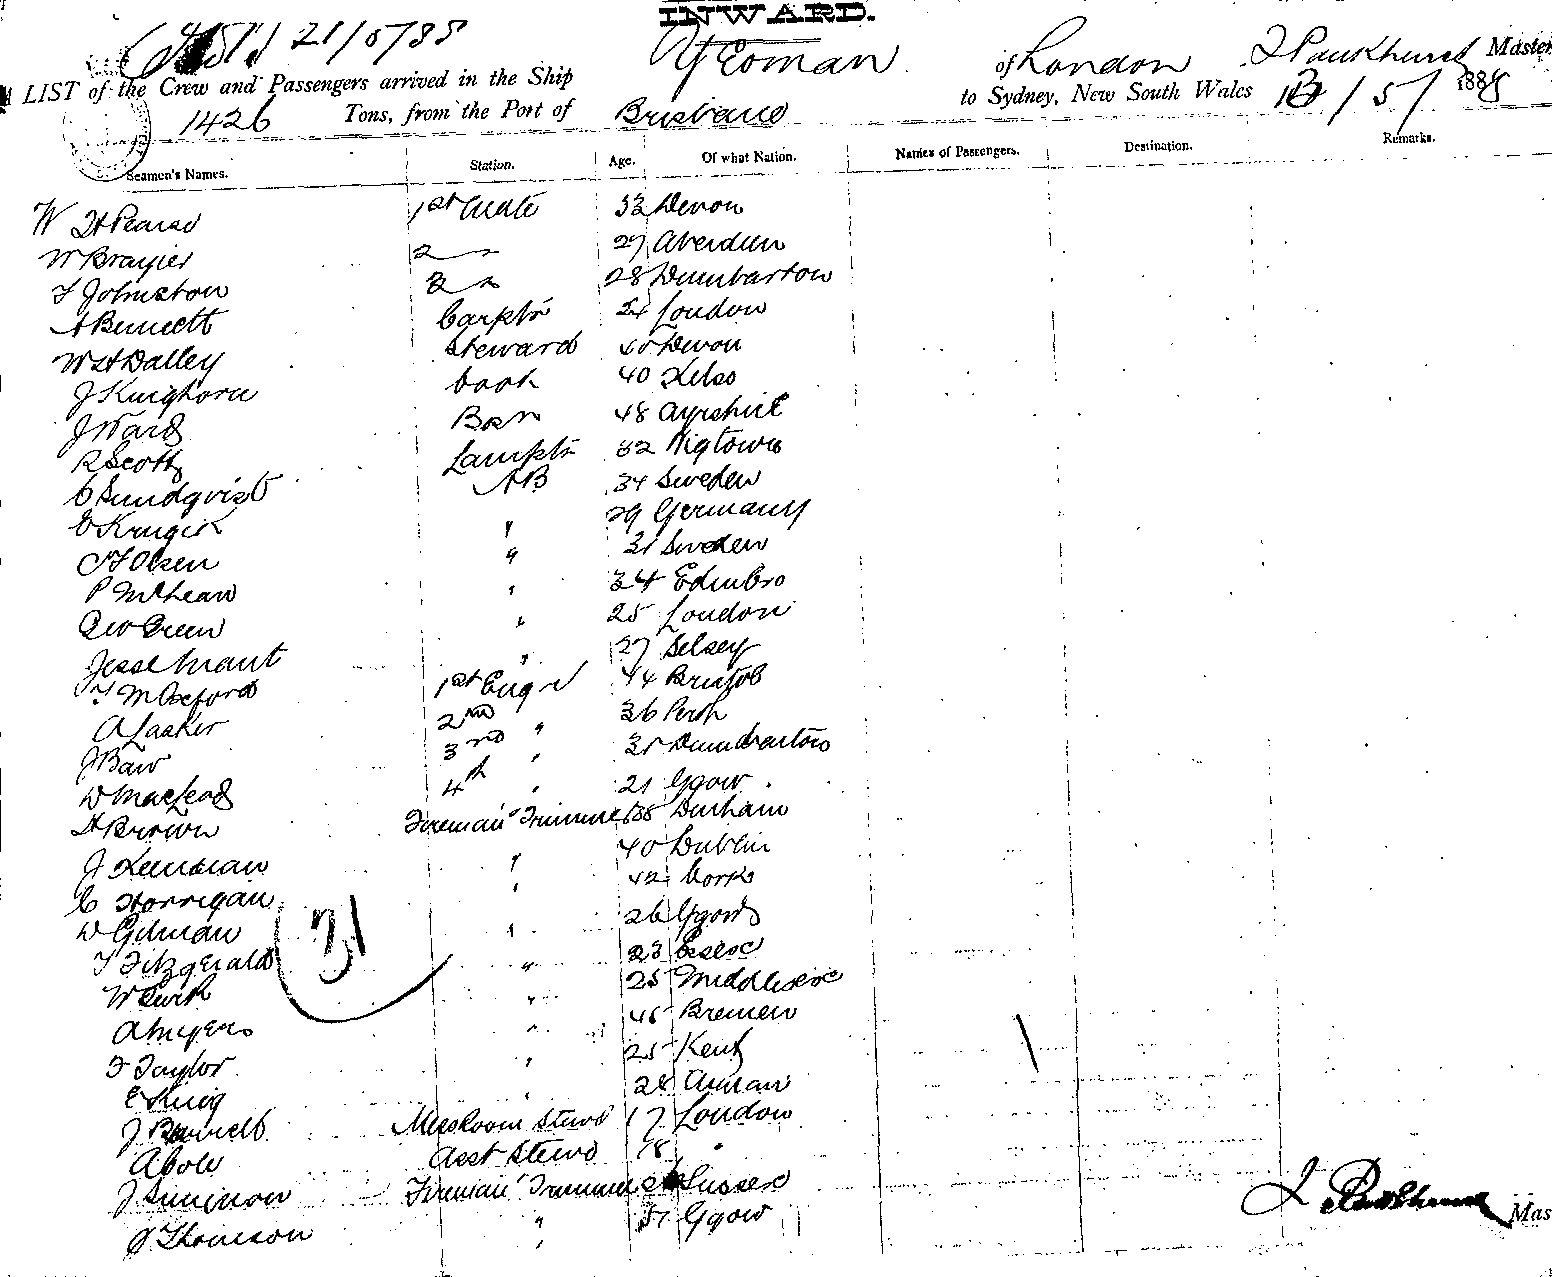 INWARD.
21/5/88
LIST of the Crew and Passengers arrived in the Ship Yeoman of London Master
1426 Tons, from the Port of Brisbane to Sydney, New South Wales /5/ 1888
Seamen's Names. Station. Age. Of what Nation. Names of Passengers. Destination. Remarks.
W H Pearse 1st Mate 32 Devon
W Brazier 2 " 27 Aberdeen
T Johnston 3 " 28 Dumbarton
A Bennett Carptr 24 London
W H Dalley Steward 40 Devon
J Kinghorn Cook 40 Kelso
J Ward Bsn 48 Ayrshire
R Scott Lamptr 32 Wigtown
C Sundqvist AB 34 Sweden
E Kruger " 29 Germany
C F Olsen " 31 Sweden
P McLean " 34 Edinbro
Geo Green " 25 London
Jesse Grant " 27 Selsey
T M Oxford 1st Engr 44 Bristol
A Lasker 2nd " 36 Perth
J Baw 3rd " 35 Dumbarton
D MacLeod 4th " 21 Ggow
H Brown Fireman & Trimmer 38 Durham
J Keenan " 40 Dublin
C Horrigan " 42 Cork
D Gilman " 26 Ggow
31
T Fitzgerald " 23 Essex
W Quirk " 25 Middlesex
A Myers " 45 Bremen
F Taylor " 25 Kent
E King " 28 Annan
J Messroom Stewd 17 London
A Cole Asst Stewd 18 "
J Simpson Fireman & Trimmer Sussex
J Thomson " 37 Ggow
Mas